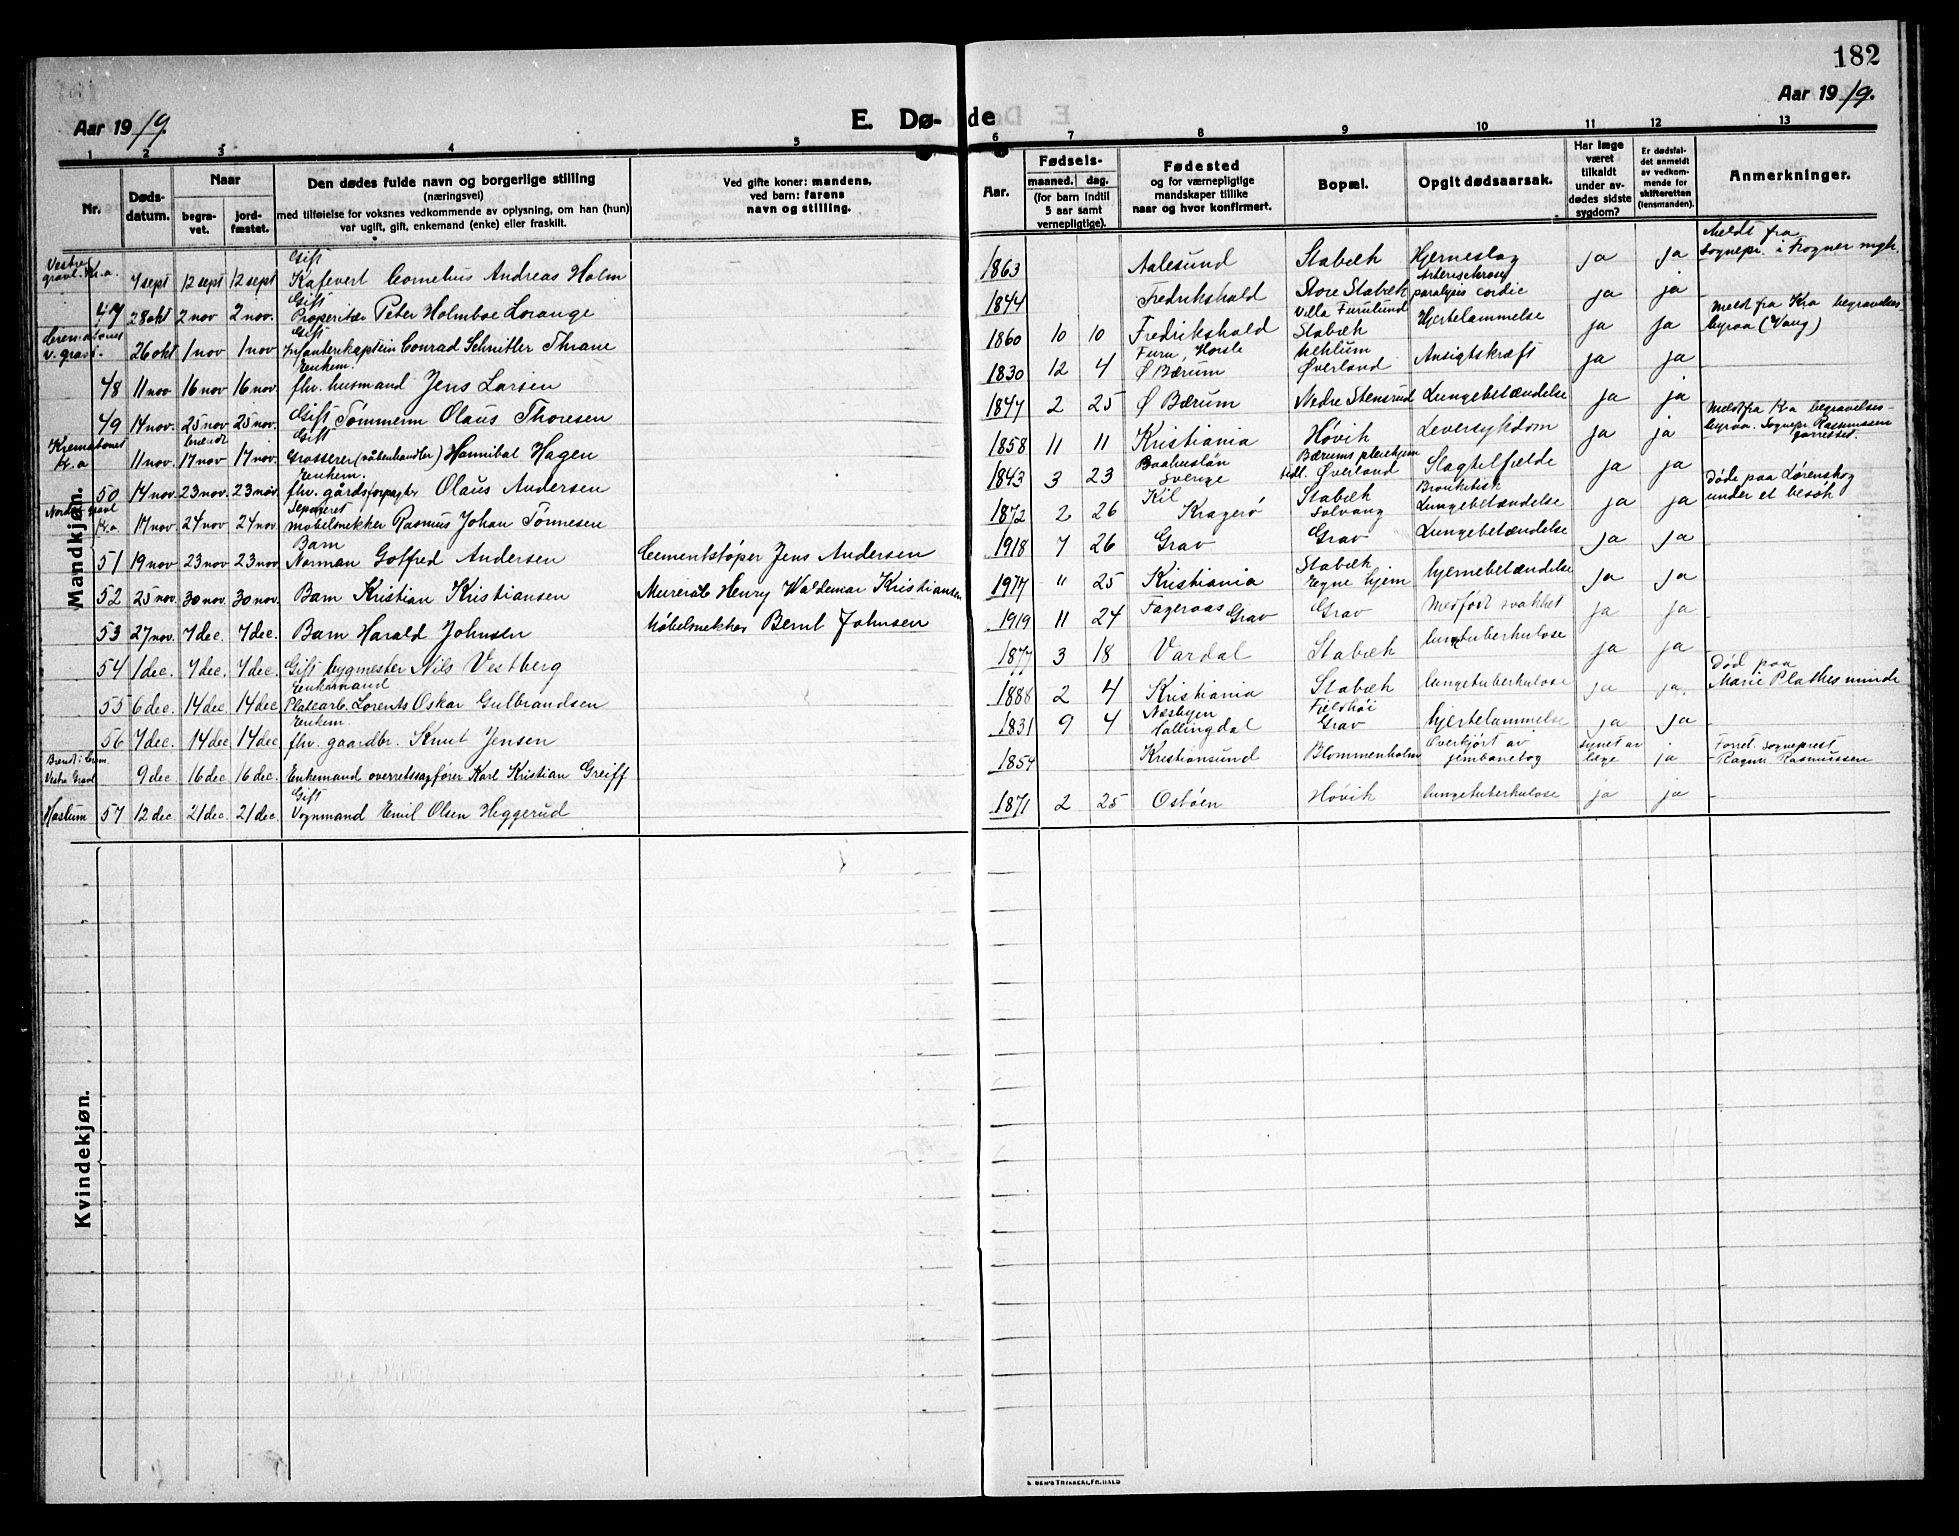 182
Aar 1919.
Aar 1919.
E. Dø-de
1 2 3 4 5 6 7 8 9 10 11 12 13
Nr.
Døds-datum.
Naar
begra-vet.
jord-fæstet.
Den dødes fulde navn og borgerlige stilling
(næringsvei)
med tilføielse for voksnes vedkommende av oplysning, om han (hun)
var ugift, gift, enkemand (enke) eller fraskilt.
Ved gifte koner: mandens,
ved barn: farens
navn og stilling.
Aar.
Fødsels-
maaned. dag.
(for barn indtil
5 aar samt
vernepligtige).
Fødested
og for værnepligtige
mandskaper tillike
naar og hvor konfirmert.
Bopæl.
Opgit dødsaarsak.
Har læge
været
tilkaldt
under av-
dødes sidste
sygdom?
Er dødsfal-
det anmeldt
av vedkom-
mende for
skifteretten
(lensmanden).
Anmerkninger.
Mandkjøn.
Vestre gravl. Kr.a. 4 sept 12 sept 12 sept Gift Cornelius Andreas Holm 1863 Aalesund Stabæk Hjerneslag ja ja Meldt fra sognepr. i Frogner mgh.
47 28 okt 2 nov 2 nov. Gift Proprietær Peter Holmboe Lorange 1844 Fredrikshald Store Stabæk paralysis cordis ja ja
v. gravl. 26 okt 1 nov 1 nov Gift Infanterikaptein Conrad Schnitler Thrane 1860 10 10 Fredrikshald Villa Furulund Stabæk Hjertelammelse ja ja Meldt fra Kra begravelses-byraa (Vang)
48 11 nov 16 nov 16 nov. Enkem. fhv. husmand Jens Larsen 1830 12 4 Ø Bærum Øverland Ansigtskræft ja ja
49 14 nov. 25 nov. 25 nov. Gift Tømmerm Olaus Thoresen 1847 2 25 Ø Bærum Nedre Stensrud Lungebetændelse ja ja
Krematoriet Kr.a 11 nov. brændt 17 nov. 17 nov. Gift Grosserer (våbenhandler) Hannibal Hagen 1858 11 11 Kristiania Høvik Leversykdom ja ja Meldt fra Kr.a begravelses-byraa. Sognepr. Rasmussen forrettet.
50 14 nov. 23 nov. 23 nov. Enkem. fhv. gårdsforpagter Olaus Andersen 1843 3 23 Baahuslän Sverige Bærums pleiehjem Øverland Slagtilfælde ja ja
Nordre gravl Kr.a 17 nov 24 nov 24 nov. Separeret møbelsnekker Rasmus Johan Tønnesen 1872 2 26 Kil Kragerø Stabæk Solvang Bronkitisk Lungebetændelse ja ja Døde paa Lørenskog under et besøk
51 19 nov 23 nov 23 nov Barn Norman Gotfred Andersen Cementstøper Jens Andersen 1918 7 26 Grav Grav Lungebetændelse ja ja
52 25 nov. 30 nov. 30 nov. Barn Kristian Kristiansen Murerarb Henry Waldemar Kristiansen 1917 " 25 Kristiania Stabæk Egne hjem hjernebetændelse ja ja
53 27 nov. 7 dec. 7 dec. Barn Harald Johnsen Møbelsnekker Bernt Johnsen 1919 11 24 Fageraas Grav Grav Medfødt svakhet ja ja
54 1 dec. 7 dec. 7 dec. Gift bygmester Nils Vestberg 1877 3 18 Vardal Stabæk lungetuberkulose ja ja
55 6 dec. 14 dec. 14 dec Enkemand Platearb. Lorents Oskar Gulbrandsen 1888 2 4 Kristiania Stabæk lungetuberkulose ja ja. Død paa Marie Plathes minde
56 7 dec. 14 dec. 14 dec. Enkem fhv. gaardbr. Knut Jensen 1831 9 4 Næsbyen Hallingdal Fjeldhøi Grav hjertelammelse ja ja
Brændt i Crem. Vestre Gravl 9 dec. 16 dec. 16 dec. Enkemand overretssagfører Karl Kristian Greiff 1854 Kristiansund Blommenholm Overkjørt av jernbanetog synet av læge ja Forret. sogneprest Ragnv Rasmussen
Haslum 57 12 dec. 21 dec. 21 dec. Gift Vognmand Emil Olsen Heggerud 1871 2 25 Ostøen Høvik lungetuberkulose ja ja
Kvindekjøn.